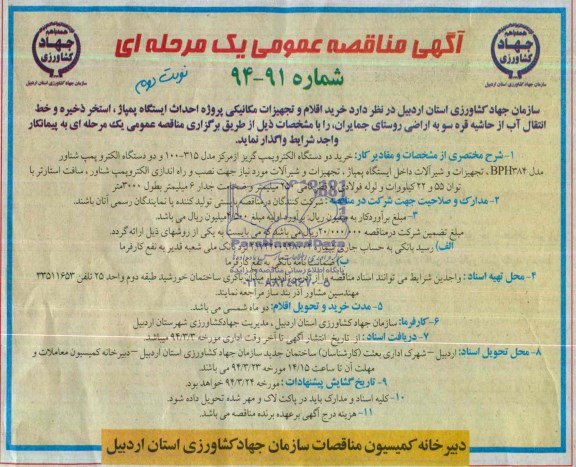 همه با هم
جهاد
کشاورزی
سازمان جهاد کشاورزی استان اردبیل
آگهی مناقصه عمومی یک مرحله ای
شماره ۹۱-۹۴
نوبت دوم
همه با هم
جهاد
کشاورزی
سازمان جهاد کشاورزی استان اردبیل
سازمان جهاد کشاورزی استان اردبیل در نظر دارد خرید اقلام و تجهیزات مکانیکی پروژه احداث ایستگاه پمپاژ ، استخر ذخیره و خط
انتقال آب از حاشیه قره سو به اراضی روستای جمایران، را با مشخصات ذیل از طریق برگزاری مناقصه عمومی یک مرحله ای به پیمانکار
واجد شرایط واگذار نماید.
۱- شرح مختصری از مشخصات و مقادیر کار: خرید دو دستگاه الکتروپمپ گریز از مرکز مدل ۳۱۵-۱۰۰ و دو دستگاه الکترو پمپ شناور
مدل BPH۳۸۴ ، تجهیزات و شیرآلات داخل ایستگاه پمپاژ ، تجهیزات و شیرآلات مورد نیاز جهت نصب و راه اندازی الکتروپمپ شناور ، سافت استارتر با
توان ۵۵ و ۲۲ کیلووات و لوله فولادی ۲۵۰ میلیمتر و ضخامت جدار ۶ میلیمتر بطول ۳۰۰۰ متر
۲- مدارک و صلاحیت جهت شرکت در مناقصه : شرکت کنندگان در مناقصه بایستی تولید کننده یا نمایندگان رسمی آنان باشند.
۳- مبلغ برآورد کار به میلیون ریال: برآورد اولیه مبلغ میلیون ریال می باشد.
مبلغ تضمین شرکت در مناقصه ۲۰/۰۰۰/۰۰۰ ریال می باشد که می بایست به یکی از روشهای ذیل ارائه گردد.
الف) رسید بانکی به حساب جاری شماره نزد بانک ملی شعبه غدیر به نفع کارفرما
ب) ضمانت نامه بانکی به نفع کارفرما
۴- محل تهیه اسناد : واجدین شرایط می توانند اسناد مناقصه را از آدرس باکری ساختمان خورشید طبقه دوم واحد ۲۵ تلفن ۳۳۵۱۱۶۵۳
مهندسین مشاور آذر بند ساز مراجعه نمایند.
۵- مدت خرید و تحویل اقلام: دو ماه شمسی می باشد.
۶- کارفرما: سازمان جهاد کشاورزی استان اردبیل ، مدیریت جهاد کشاورزی شهرستان اردبیل
۷- دریافت اسناد : از تاریخ انتشار آگهی تا آخر وقت اداری مورخه ۹۴/۳/۳ میباشد.
۸- محل تحویل اسناد: اردبیل – شهرک اداری بعثت (کارشناسان) ساختمان جدید سازمان جهاد کشاورزی استان اردبیل – دبیرخانه کمیسیون معاملات و
مهلت آن تا ساعت ۱۴/۱۵ مورخه ۹۴/۳/۲۳ می باشد.
۹- تاریخ گشایش پیشنهادات : مورخه ۹۴/۳/۲۴ خواهد بود.
۱۰- کلیه اسناد و مدارک باید در پاکت لاک و مهر شده تحویل داده شود.
۱۱- هزینه درج آگهی بر عهده برنده مناقصه می باشد.
دبیرخانه کمیسیون مناقصات سازمان جهاد کشاورزی استان اردبیل
ParsNamadData
پایگاه اطلاع رسانی مناقصه و مزایده
۰۲۱-۸۸۳۴۹۶۷۰-۵